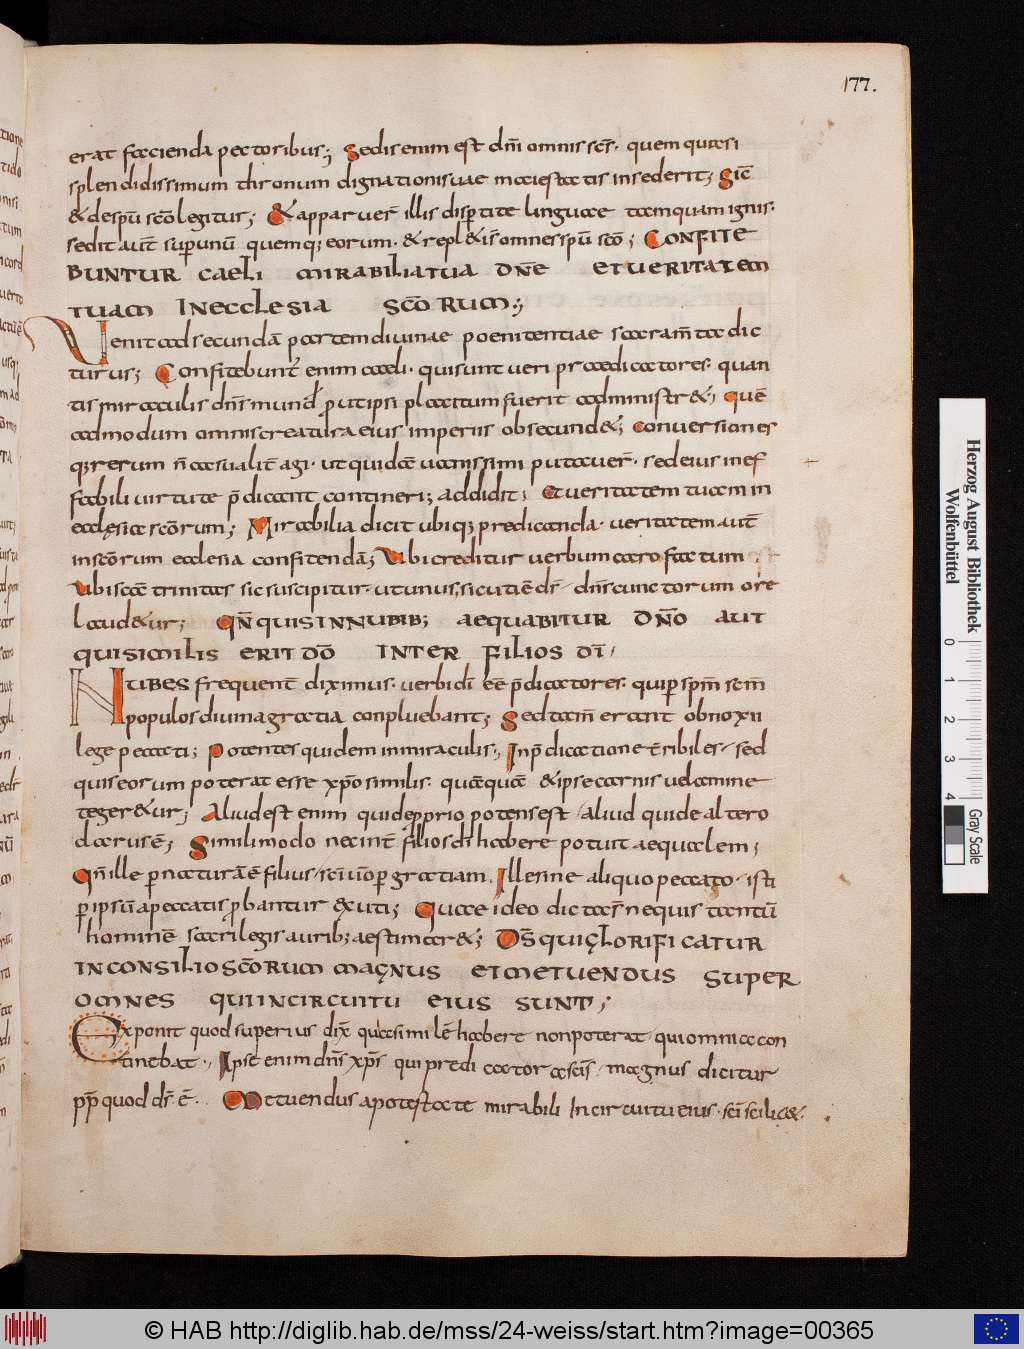 177.
erat facienda pectoribus; Sedis enim est dnī omnis scs̄. quem quasi
splendidissimum thronum dignationis uae maiestatis insederit; Sic̄
& despū scōlegitur; & apparuer̄ illis disptite linguae tamquam ignis.
sedit aut̄ supunū quemq; eorum. & repl&is̄ omnes spū scō; CONFITE
BUNTUR CAELI MIRABILIA TUA DN̄E ET UERITATEM
TUAM IN ECCLESIA SCŌRUM;
Uenit ad secundā partem diuinae poenitentiae sacram̄ta dic
turus; Confitebunt̄ enim caeli. qui sunt ueri praedicatores. quan
tis miraculis dn̄s mund' put ipsi placitum fuerit administr&; Quē
admodum omnis creatura eius imperiis obsecund&; Conuersiones
q; rerum n̄ casualit̄ agi. ut quidā uanissimi putauer̄. sed eius inef
fabili uirtute p̄dicant contineri; addidit; Et ueritatem tuam in
ecclesia scōrum; Mirabilia dicit ubiq; predicanda. ueritatem aut̄
in scōrum ecclesia confitendā; Ubi creditur uerbum caro factum
Ubi scā trinitas sic suscipitur. ut unus, sicuti ē ds̄ dn̄s cunctorum ore
laud&ur; QN̄ QUIS IN NUBIB; AEQUABITUR DN̄O AUT
QUI SIMILIS ERIT DŌ INTER FILIOS DĪ
NUBES frequent̄ diximus. uerbi dī eē p̄dicatores. qui p spm̄ scm̄
populos diuina gratia conpluebant; Sed tam̄ erant obnoxii
lege peccati; Potentes quidem in miraculis; In p̄dicatione t̄ribiles sed
quis eorum poterat esse xp̄o similis. quāquā & ipse carnis uelamine
teger&ur; Aliud est enim quidē pprio potens est aliud quide altero
datus ē; Simili modo nec int̄ filios dī habere potuit aequalem;
Qn̄ ille p naturā ē filius scī uīo p gratiam. Ille sine aliquo peccato isti
p ipsū a peccatis pbantur exuti; Quae ideo dicta s̄ ne quis tantū
hominē sacrilegis aurib; aestimar&; DS̄ QUI GLORIFICATUR
IN CONSILIO SCŌRUM MAGNUS ET METUENDUS SUPER
OMNES QUI IN CIRCUITU EIUS SUNT;
Exponit quod superius dix̄ qua similē habere non poterat qui omnia con
tinebat; Ipse enim dn̄s xps̄ qui predicatora scis̄ magnus dicitur
pp̄ quod ds̄ ē. Metuendus a potestate mirabili In circuitu eius. scī scilic&.
Herzog August Bibliothek
Wolfenbüttel
0 1 2 3 4
Gray Scale
© HAB http://diglib.hab.de/mss/24-weiss/start.htm?image=00365